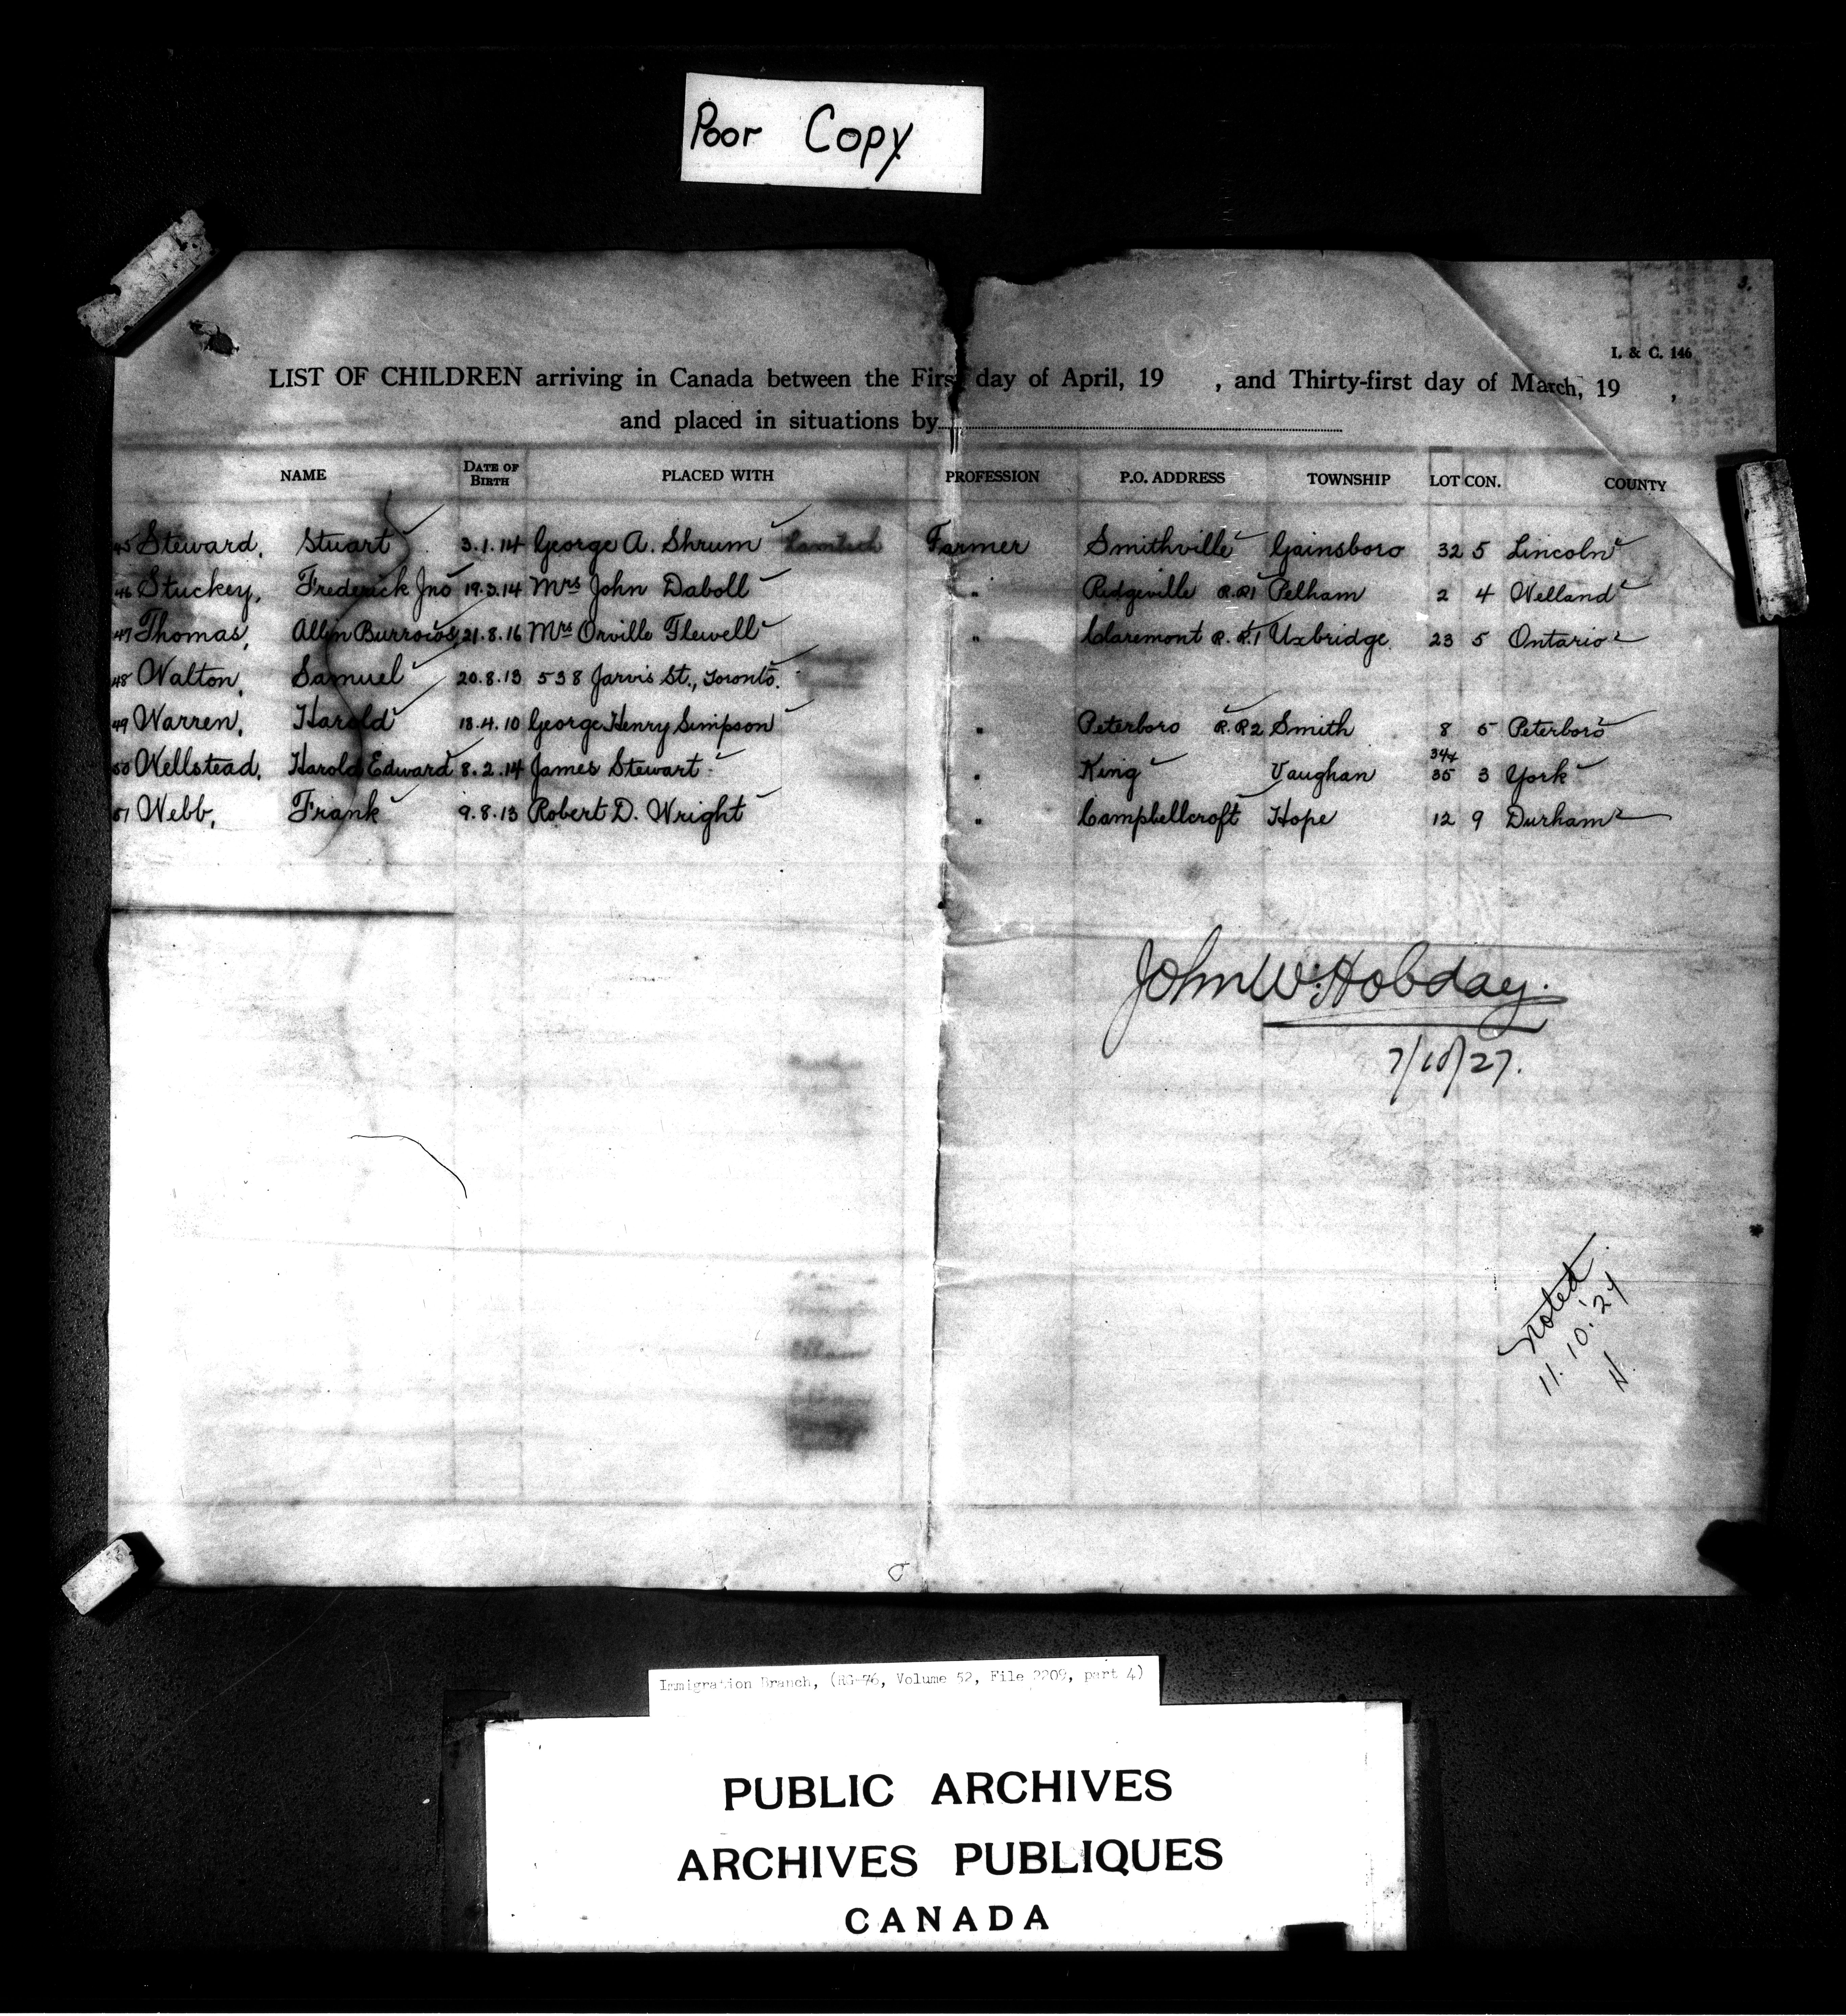 Poor Copy
3.
I. & C. 146
LIST OF CHILDREN arriving in Canada between the First day of April, 19 , and Thirty-first day of March, 19 ,
and placed in situations by
NAME DATE OF BIRTH PLACED WITH PROFESSION P.O. ADDRESS TOWNSHIP LOT CON. COUNTY
45 Steward, Stuart 3.1.14 George A. Shrum Farmer Smithville Gainsboro 32 5 Lincoln
46 Stuckey, Frederick Jno 19.3.14 Mrs John Daboll " Ridgeville R.R1 Pelham 2 4 Welland
47 Thomas, Allen Burrows 21.8.16 Mrs Orville Flewell " Claremont R.R.1 Uxbridge 23 5 Ontario
48 Walton, Samuel 20.8.13 538 Jarvis St., Toronto.
49 Warren, Harold 18.4.10 George Henry Simpson " Peterboro R.R2 Smith 8 5 Peterboro
50 Wellstead, Harold Edward 8.2.14 James Stewart " King Vaughan 34+ 35 3 York
51 Webb, Frank 9.8.13 Robert D. Wright " Campbellcroft Hope 12 9 Durham
John W. Hobday.
7/10/27.
Noted
11.10.'27
H.
Immigration Branch, (RG-76, Volume 52, File 2209, part 4)
PUBLIC ARCHIVES
ARCHIVES PUBLIQUES
CANADA